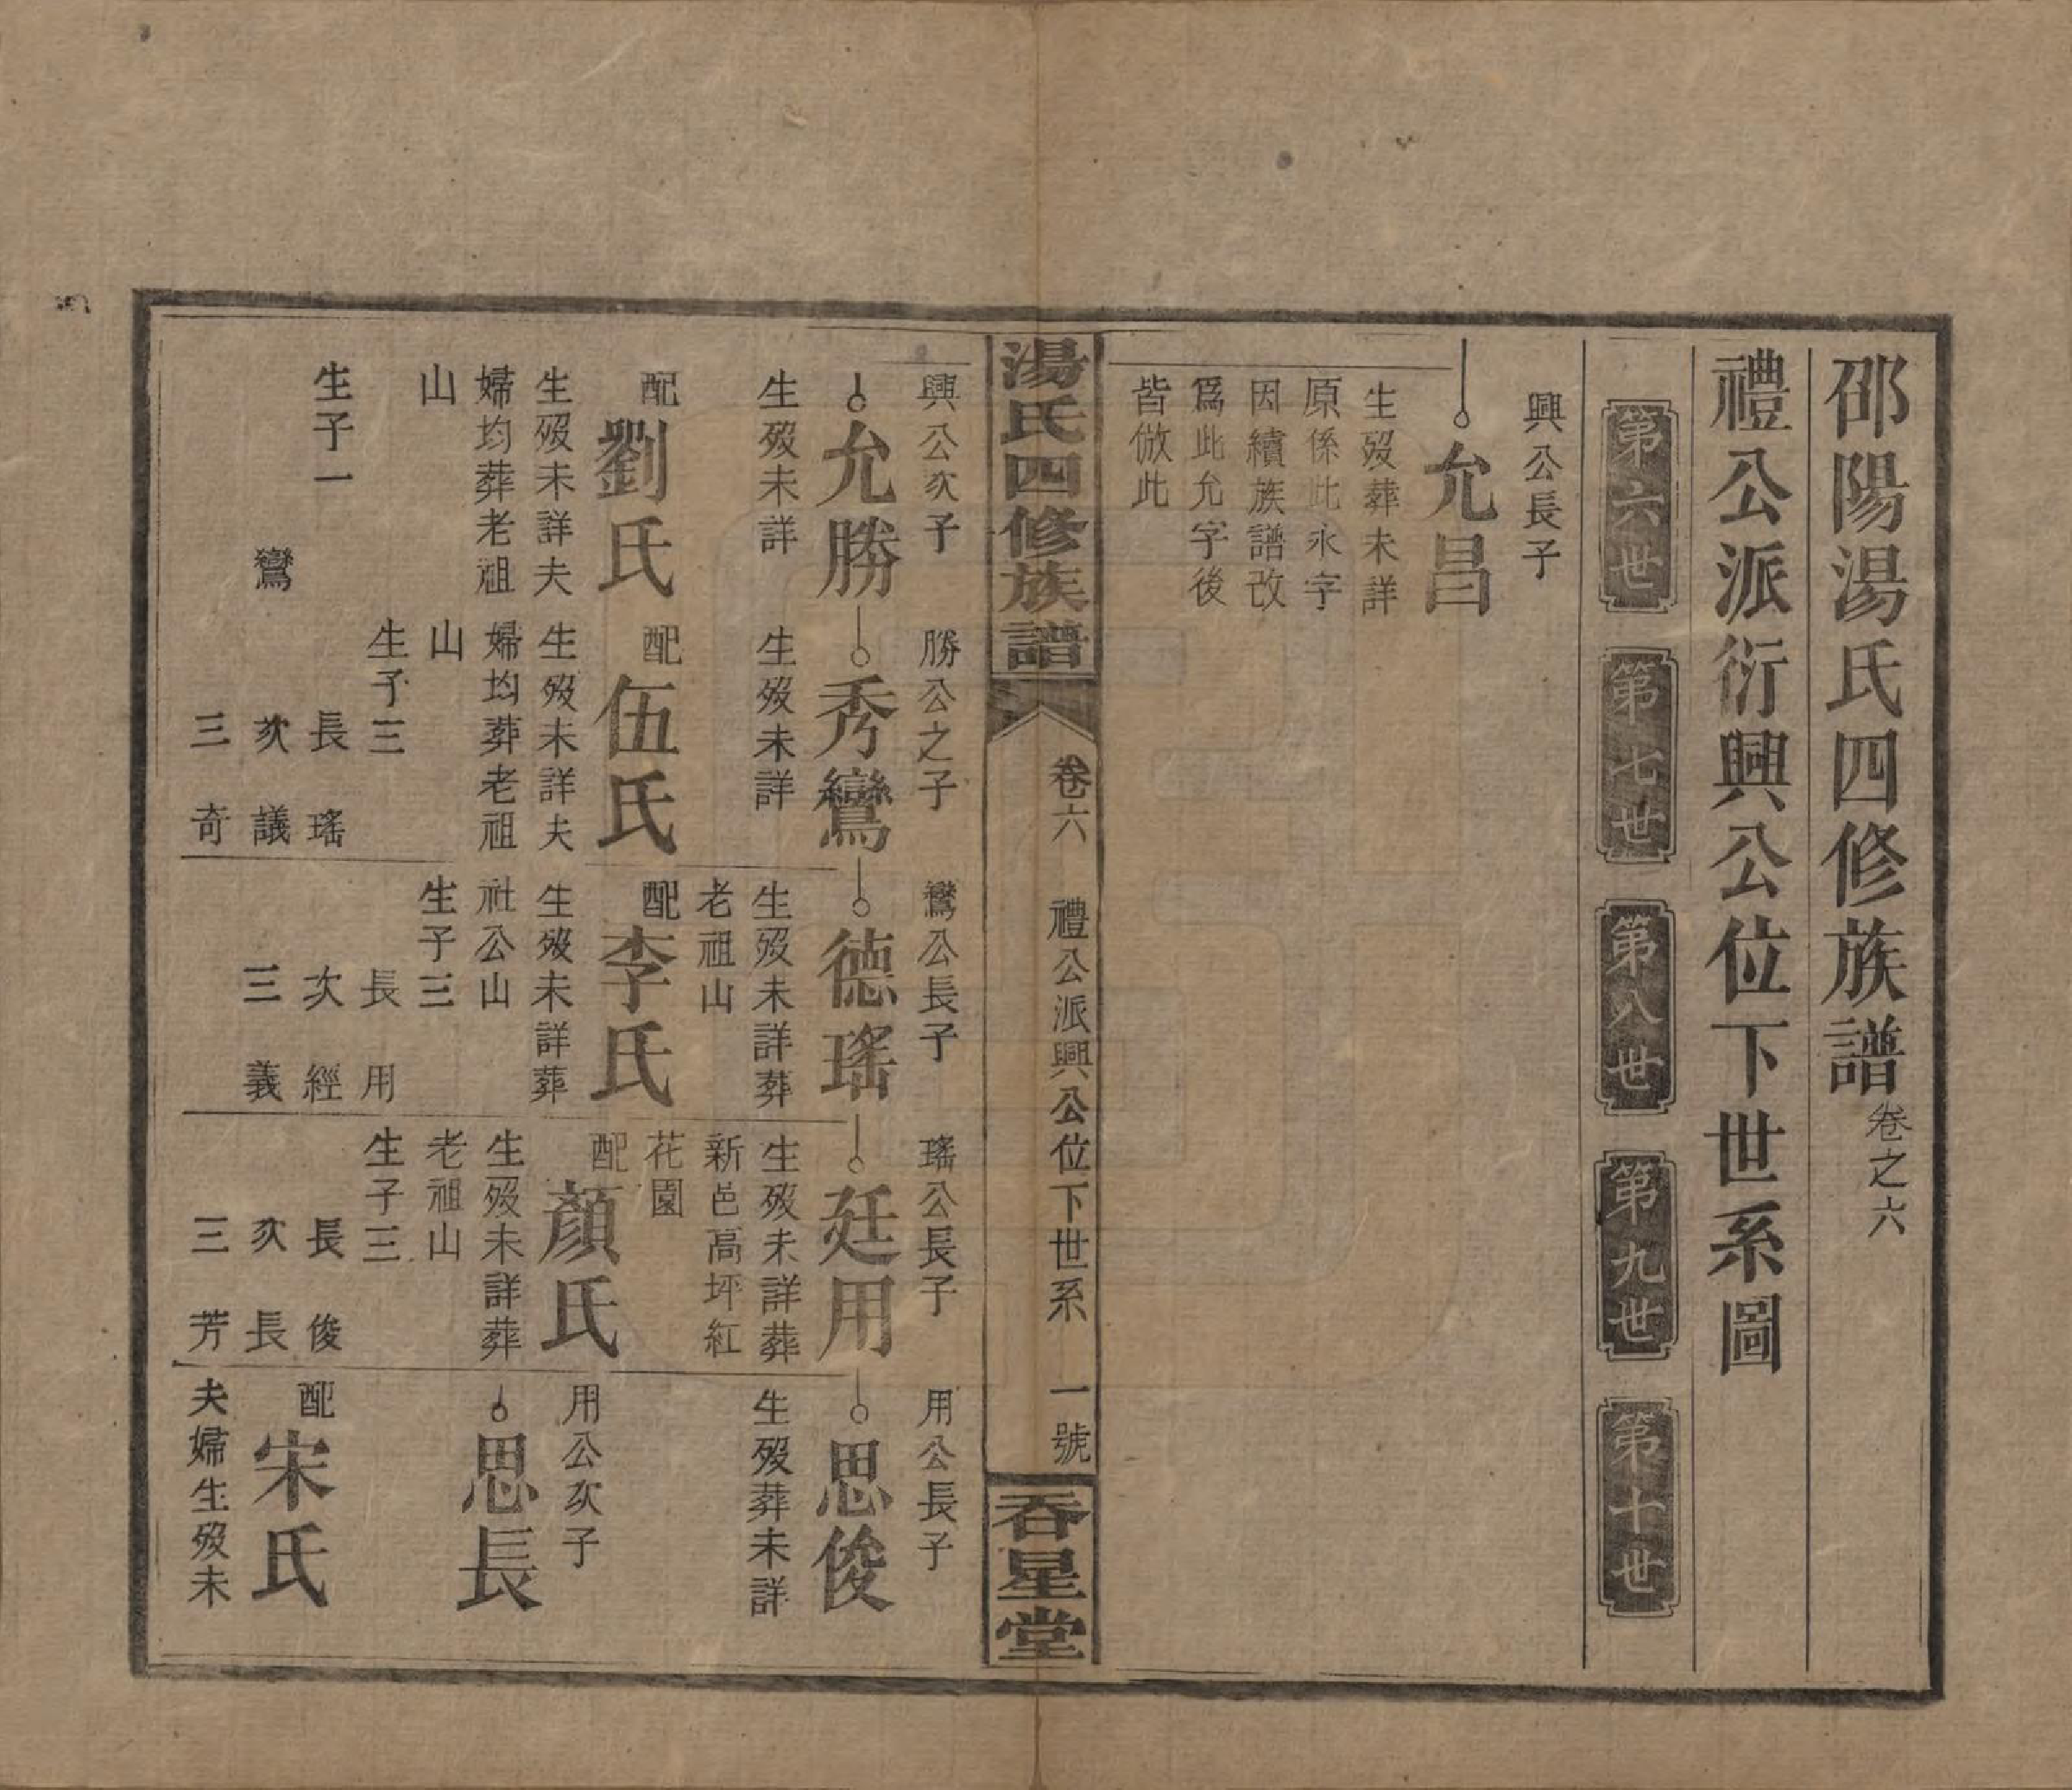 邵陽湯氏四修族譜卷之六
禮公派衍興公位下世系圖
第六世
第七世
第八世
第九世
第十世
興公長子
允昌
生歿葬未詳
原係此永字
因續族譜改
爲此允字後
皆倣此
湯氏四修族譜
卷六
禮公派興公位下世系
一號
吞星堂
興公次子
允勝
生歿未詳
配
劉氏
生歿未詳夫
婦均葬老祖
山
生子一
鸞
勝公之子
秀鸞
生歿未詳
配
伍氏
生歿未詳夫
婦均葬老祖
山
生子三
長瑤
次議
三奇
鸞公長子
德瑤
生歿未詳葬
老祖山
配
李氏
生歿未詳葬
社公山
生子三
長用
次經
三義
瑤公長子
廷用
生歿未詳葬
新邑高坪紅
花園
配
顏氏
生歿未詳葬
老祖山
生子三
長俊
次長
三芳
用公長子
思俊
生歿葬未詳
用公次子
思長
配
宋氏
夫婦生歿未